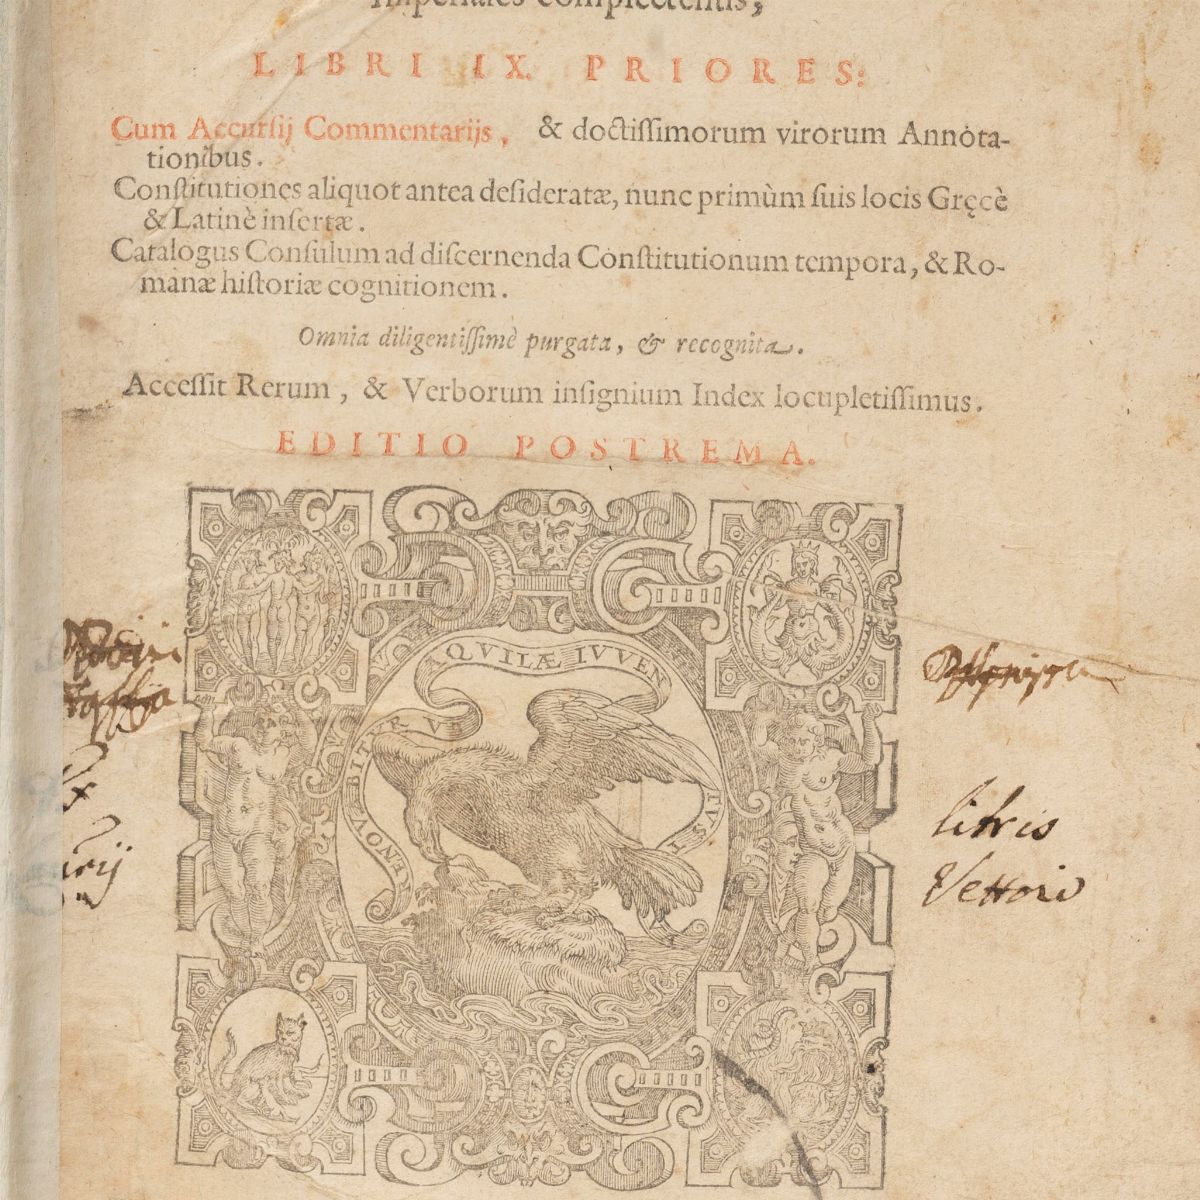 Imperiales complectentis,
LIBRI IX. PRIORES:
Cum Accursij Commentarijs, & doctissimorum virorum Annota-
tionibus.
Constitutiones aliquot antea desideratæ, nunc primùm suis locis Gręcè
& Latinè insertæ.
Catalogus Consulum ad discernenda Constitutionum tempora, & Ro-
manæ historiæ cognitionem.
Omnia diligentissimè purgata, & recognita.
Accessit Rerum, & Verborum insignium Index locupletissimus.
EDITIO POSTREMA.
RENOVABITUR VT AQVILÆ IVVEN TVS
libris
Vettori